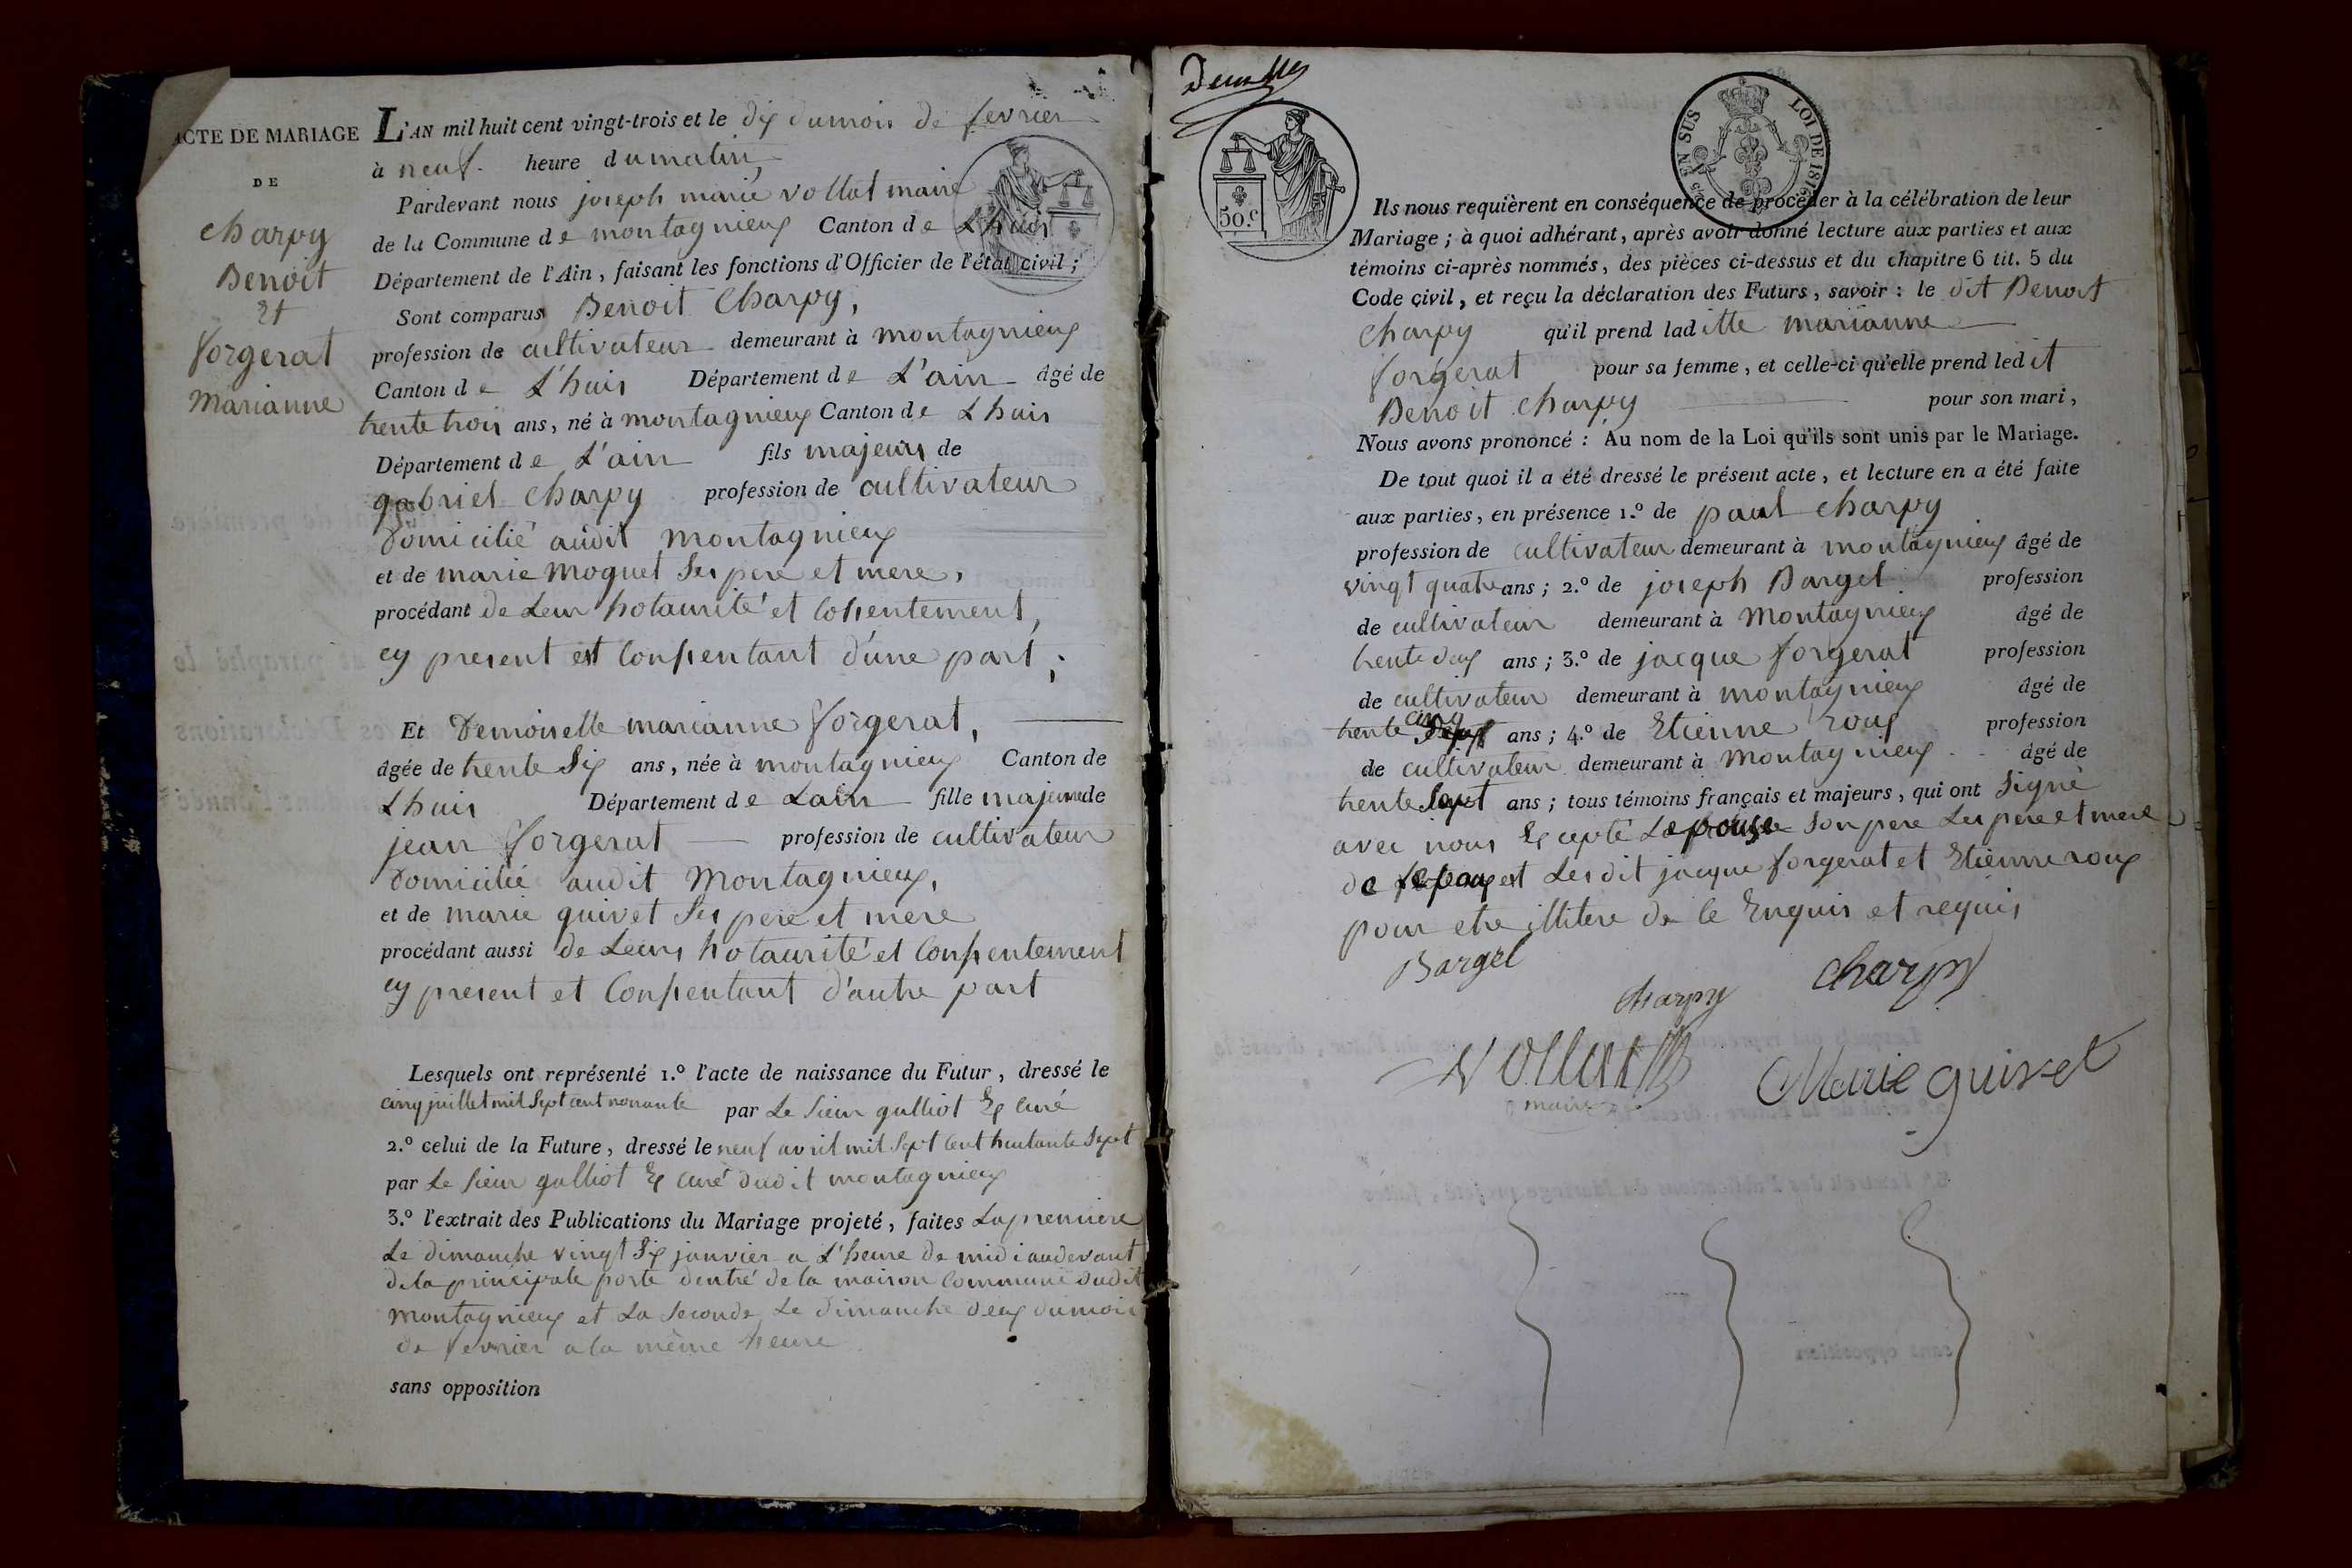 ACTE DE MARIAGE
DE
charpy
Benoit
Et
forgerat
marianne
L'AN mil huit cent vingt-trois et le dix du mois de fevrier
à neuf heure du matin,
Pardevant nous joseph marie vollat maire
de la Commune de montagnieux Canton de L'huis
Département de l'Ain, faisant les fonctions d'Officier de l'état civil;
Sont comparus Benoit Charpy,
profession de cultivateur demeurant à montagnieux
Canton de L'huis Département de L'ain âgé de
trente trois ans, né à montagnieux Canton de Lhuis
Département de L'ain fils majeurs de
gabriel charpy profession de cultivateur
Domicilié audit montagnieux
et de marie moquet Ses pere et mere,
procédant de Leur hotaurité et Consentement,
cy present est Consentant d'une part;
Et Demoiselle marianne forgerat,
âgée de trente Six ans, née à montagnieux Canton de
Lhuis Département de Lain fille majeure de
jean forgerat profession de cultivateur
Domicilié audit Montagnieux,
et de marie guivet Ses pere et mere
procédant aussi de Leurs hotaurité et Consentement
cy present et Consentant d'autre part
Lesquels ont représenté 1.º l'acte de naissance du Futur, dressé le
cinq juillet mil Sept cent nonante par Le Sieur gulliot Ex Curé
2.º celui de la Future, dressé le neuf avril mil Sept Cent huitante Sept
par Le Sieur gulliot Ex Curé dudit montagnieux
3.º l'extrait des Publications du Mariage projeté, faites La premiere
Le dimanche vingt Six janvier a L'heure de midi audevant
de la principale porte dentré de la maison Commune dudit
Montagnieux et La Seconde Le dimanche deux du mois
de fevrier a la même heure
sans opposition
50.c
EN SUS
LOI DE 1816
Ils nous requièrent en conséquence de procéder à la célébration de leur
Mariage; à quoi adhérant, après avoir donné lecture aux parties et aux
témoins ci-après nommés, des pièces ci-dessus et du chapitre 6 tit. 5 du
Code çivil, et reçu la déclaration des Futurs, savoir: le dit Benoit
Charpy qu'il prend laditte marianne
forgerat pour sa femme, et celle-ci qu'elle prend ledit
Benoit charpy pour son mari,
Nous avons prononcé: Au nom de la Loi qu'ils sont unis par le Mariage.
De tout quoi il a été dressé le présent acte, et lecture en a été faite
aux parties, en présence 1.º de paul charpy
profession de cultivateur demeurant à montagnieux âgé de
vingt quatre ans; 2.º de joseph Bargel profession
de cultivateur demeurant à Montagnieux âgé de
trente deux ans; 3.º de jacque forgerat profession
de cultivateur demeurant à montagnieux âgé de
trente cinq ans; 4.º de Etienne roux profession
de cultivateur demeurant à Montagnieux âgé de
trente Sept ans; tous témoins français et majeurs, qui ont Signé
avec nous Excepté Lepouse Son pere Les pere et mere
de Lepoux et Les dit jacque forgerat et Etienne roux
pour etre illitere de ce Enquis et requis
Bargel
charpy
charpy
vollat
maire
Marie guivet